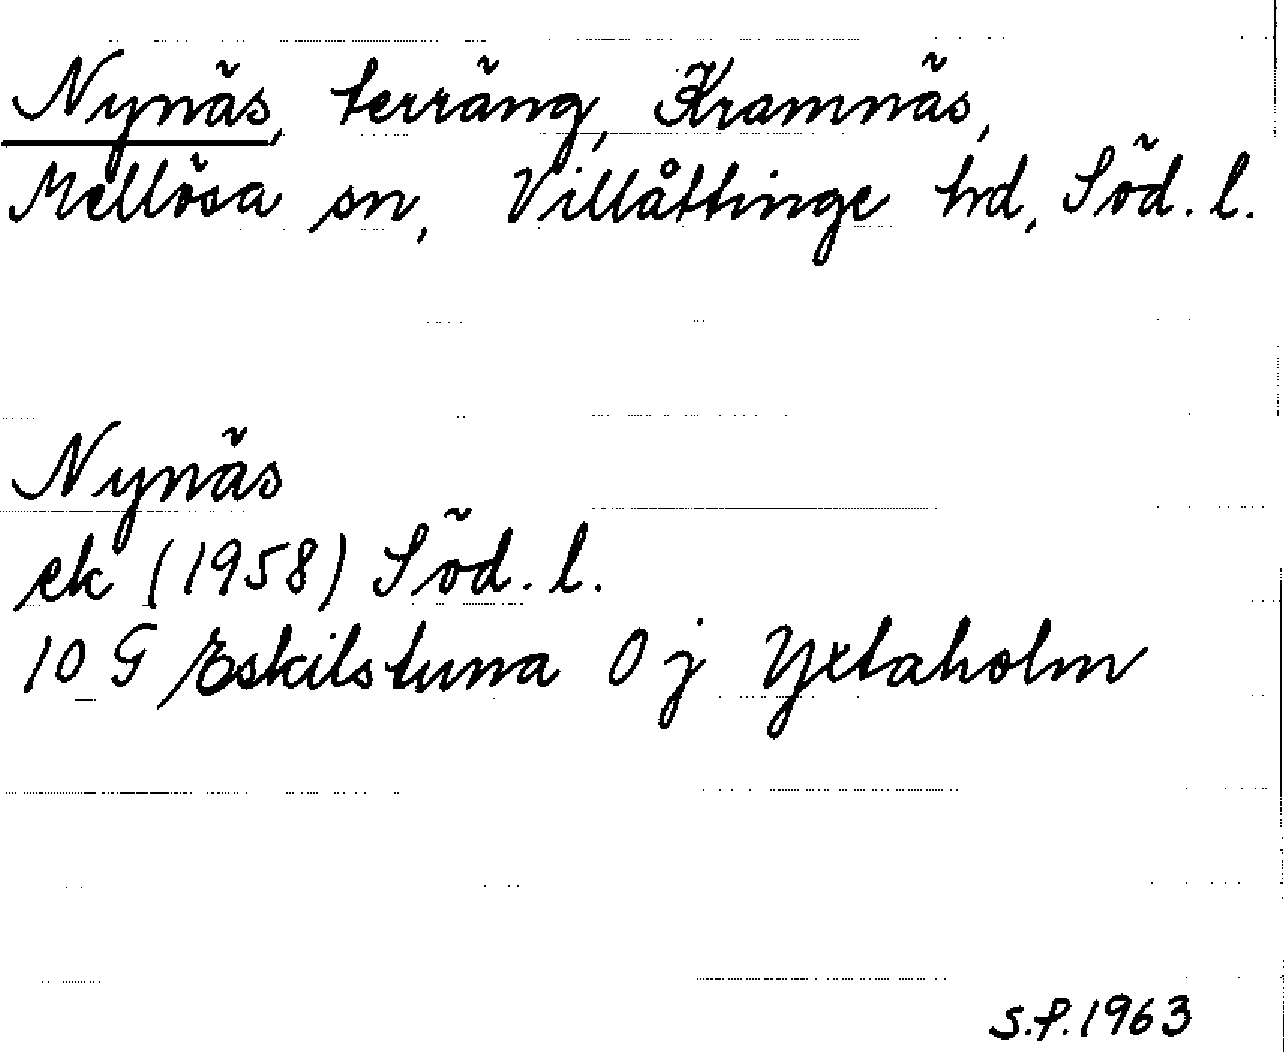 Nynäs, terräng, Kramnäs,
Mellösa sn, Villåttinge hd, Söd. l.
Nynäs
ek (1958) Söd. l.
10 G Eskilstuna 0 j Yxtaholm
S.P. 1963